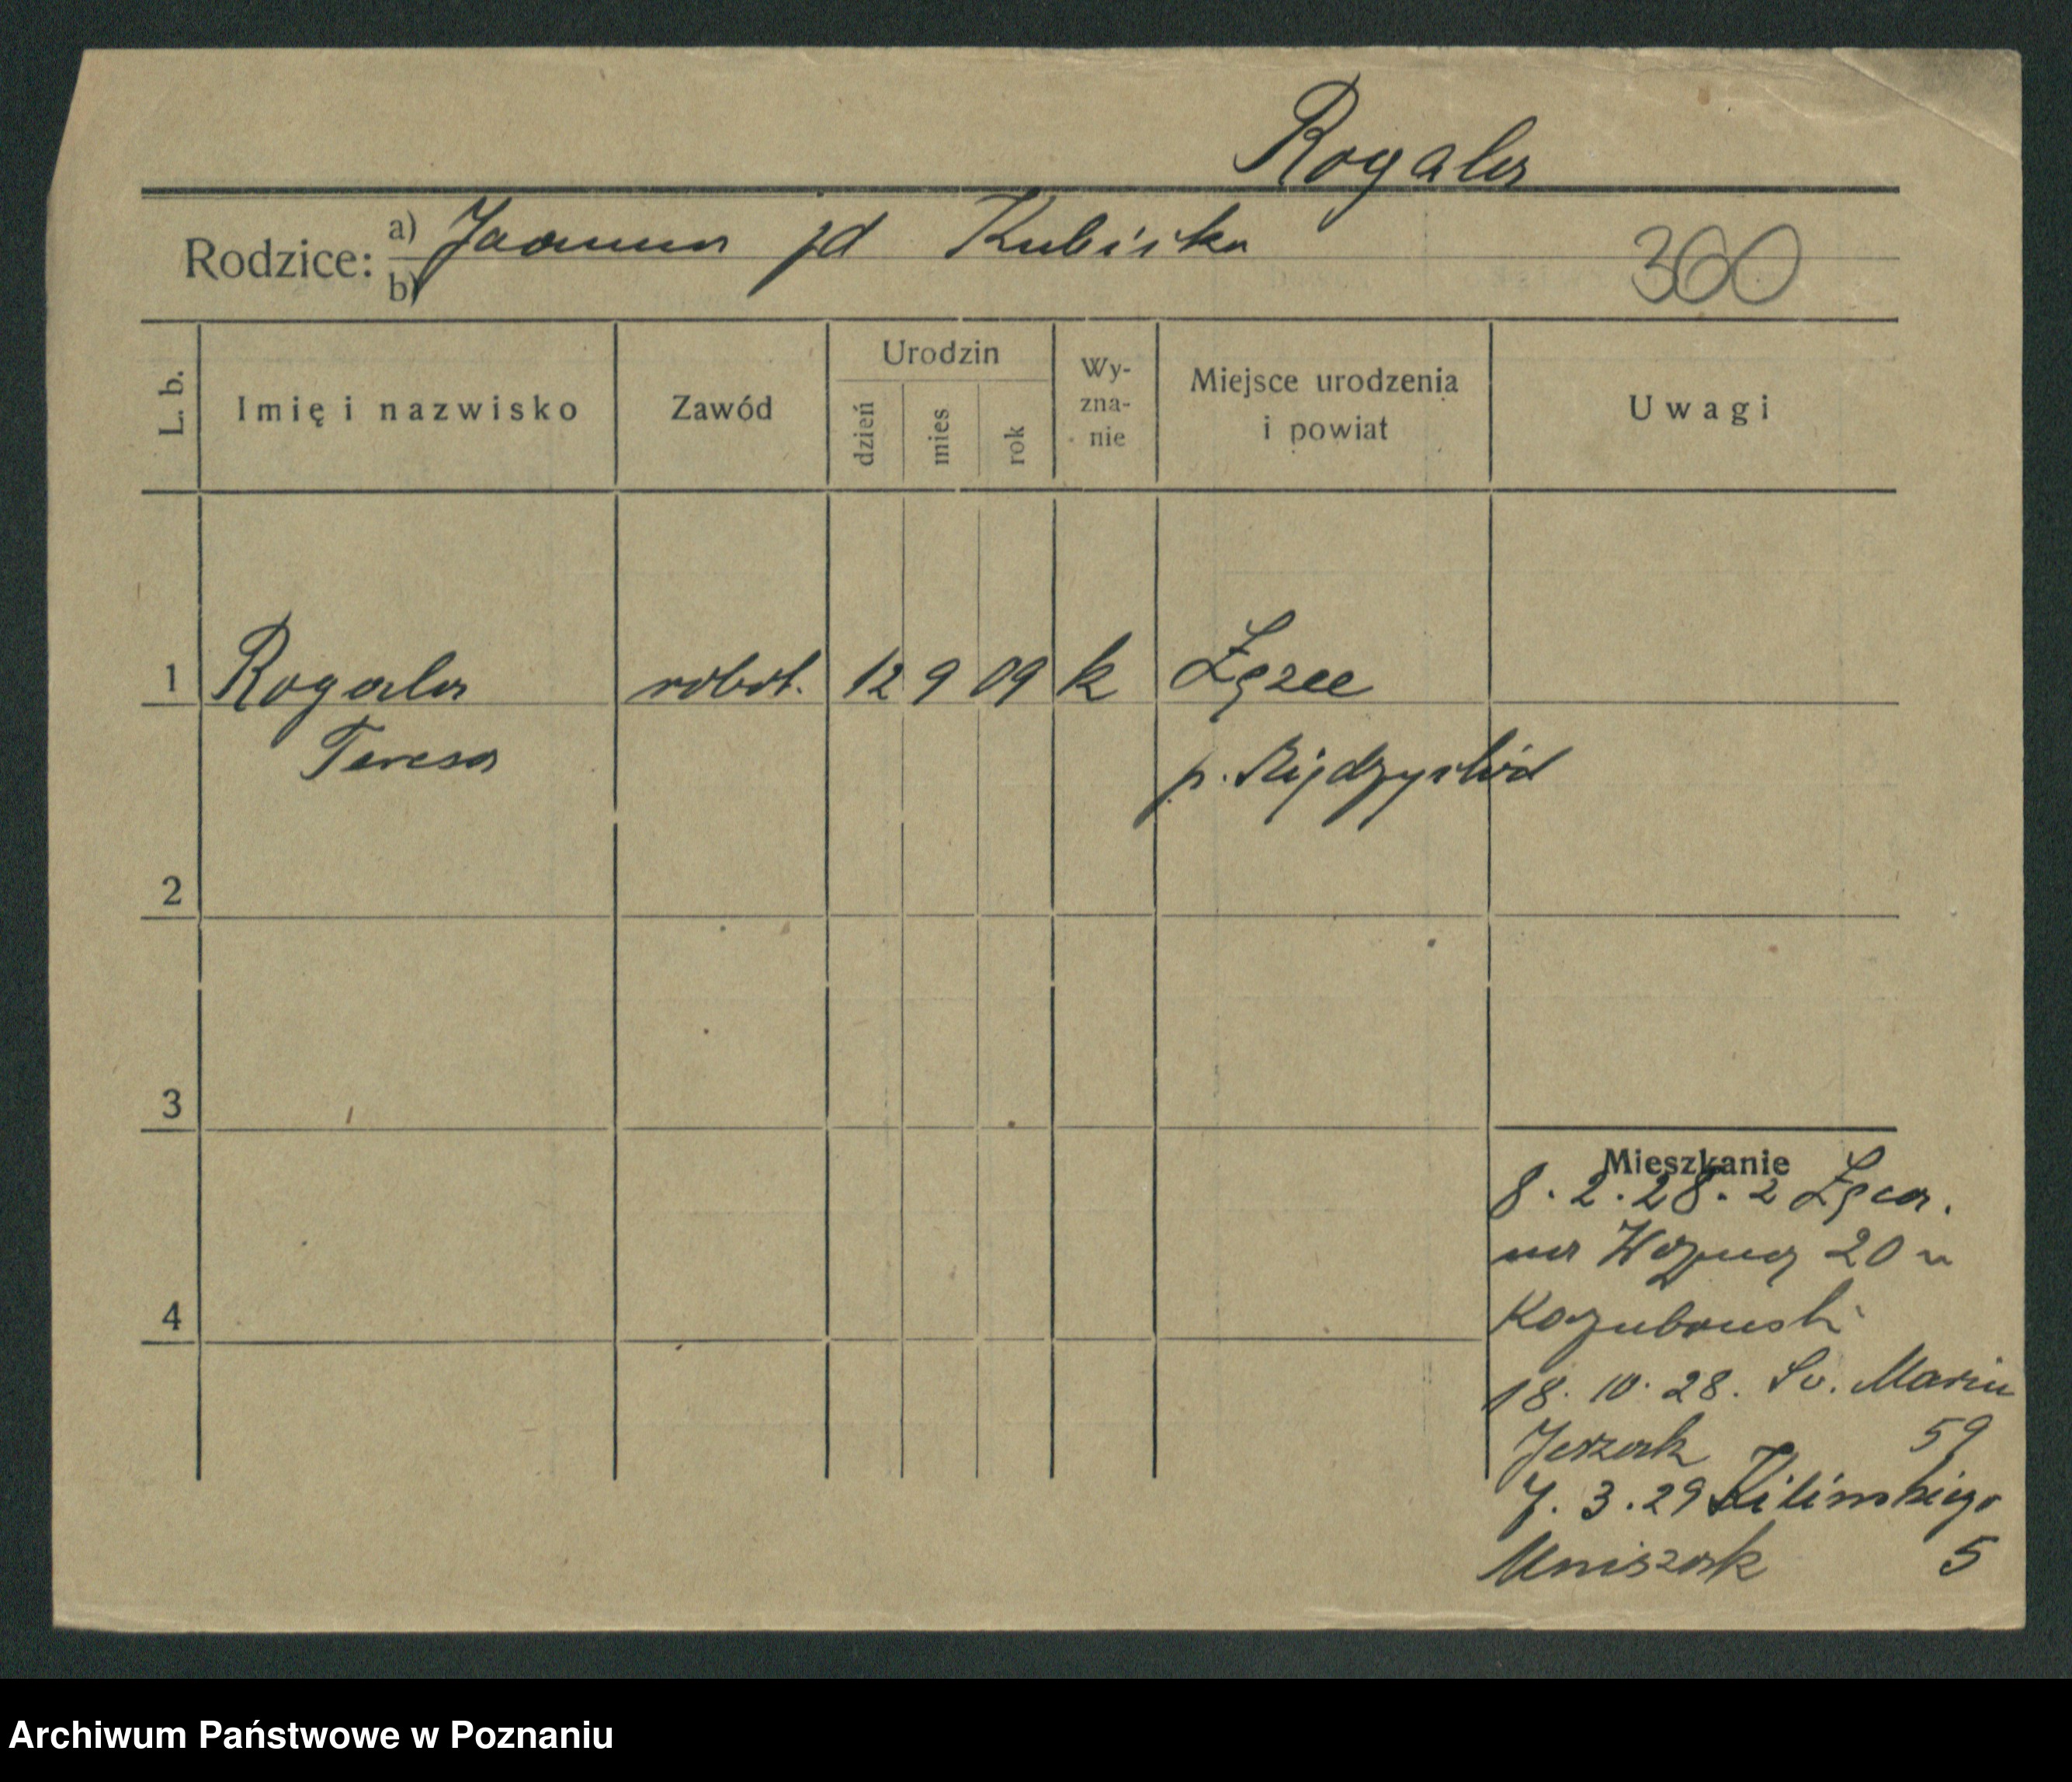 Rogala
Rodzice: a) Joanna jd Kubiska
b)
360
L. b.
Imię i nazwisko
Zawód
Urodzin
dzień
mies
rok
Wy-
zna-
nie
Miejsce urodzenia
i powiat
Uwagi
1 Rogala robot. 12 9 09 k
Teresa p. Międzychód
2
3
4
Mieszkanie
8. 2. 28. z
na 20
Kozubowski
18. 10. 28. Sw. Marcin
Jerzak 59
7. 3. 29 Kilinskiego
Mniszak 5
Archiwum Państwowe w Poznaniu